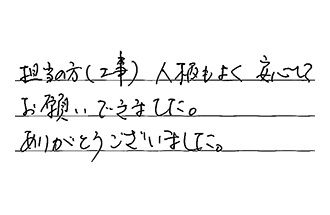 担当の方(工事)人柄もよく安心して
お願いできました。
ありがとうございました。